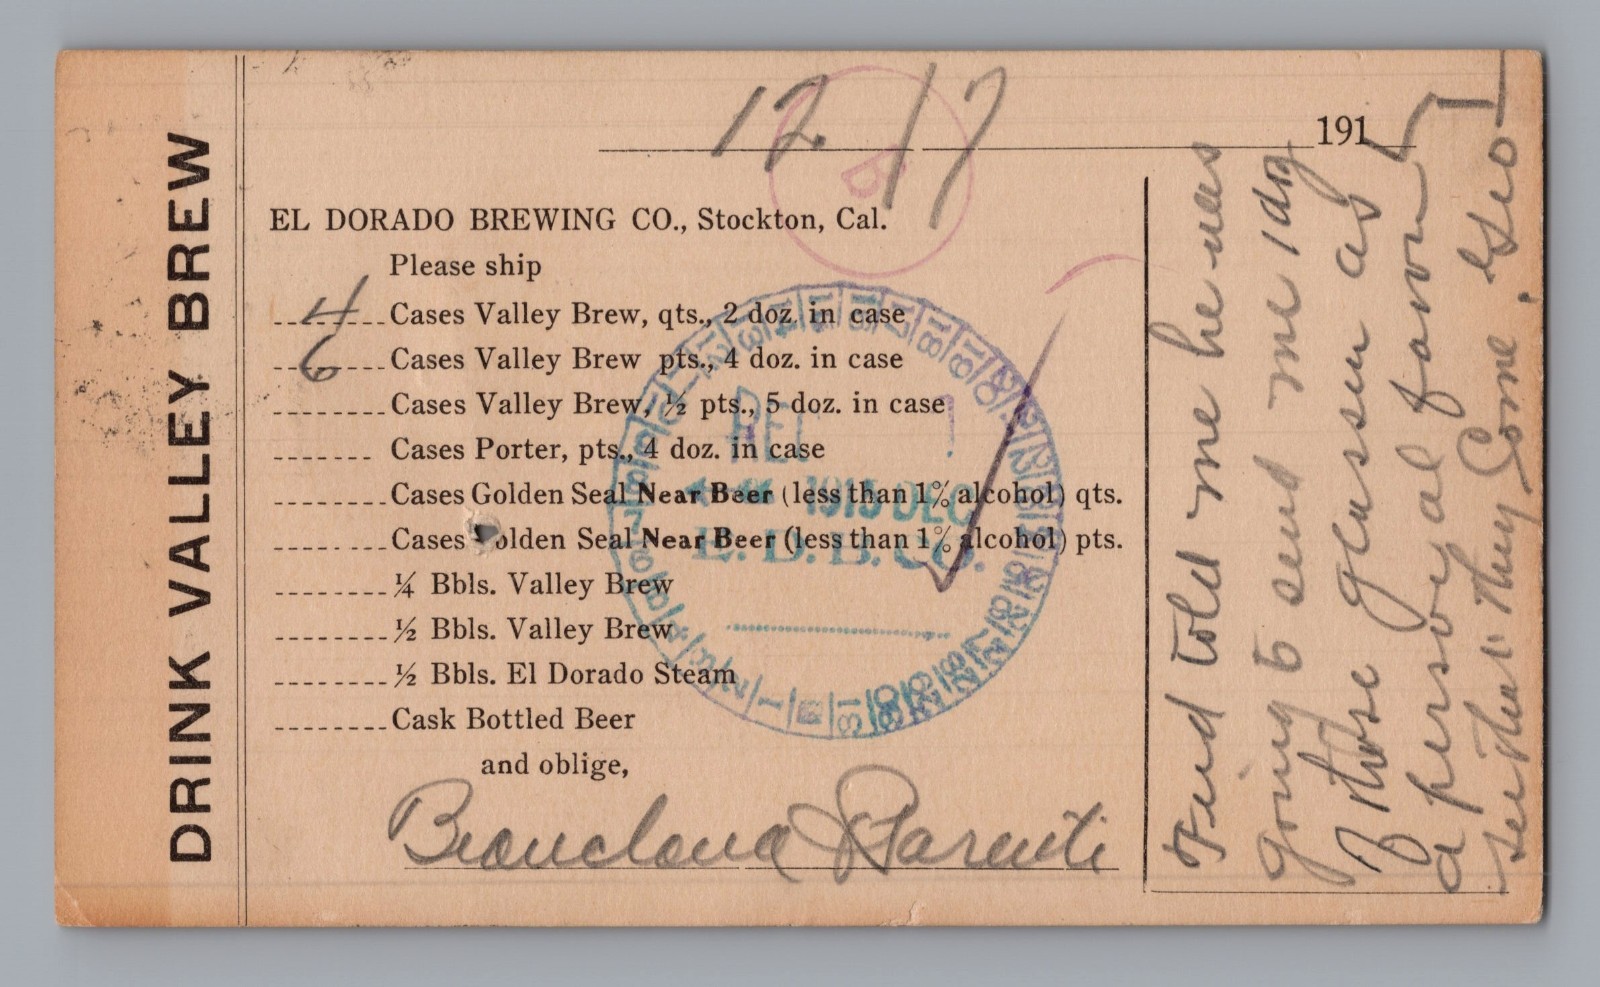 DRINK VALLEY BREW
12/17 1915
EL DORADO BREWING CO., Stockton, Cal.
Please ship
4 Cases Valley Brew, qts., 2 doz. in case
6 Cases Valley Brew pts., 4 doz. in case
Cases Valley Brew, ½ pts., 5 doz. in case
Cases Porter, pts., 4 doz. in case
Cases Golden Seal Near Beer (less than 1% alcohol) qts.
Cases Golden Seal Near Beer (less than 1% alcohol) pts.
¼ Bbls. Valley Brew
½ Bbls. Valley Brew
½ Bbls. El Dorado Steam
Cask Bottled Beer
and oblige,
& Parenti
REC
1915 DEC
E. D. B. CO.
told me he was
going to send me 1 doz
of those glasses as
a personal favor
see that they come. Geo